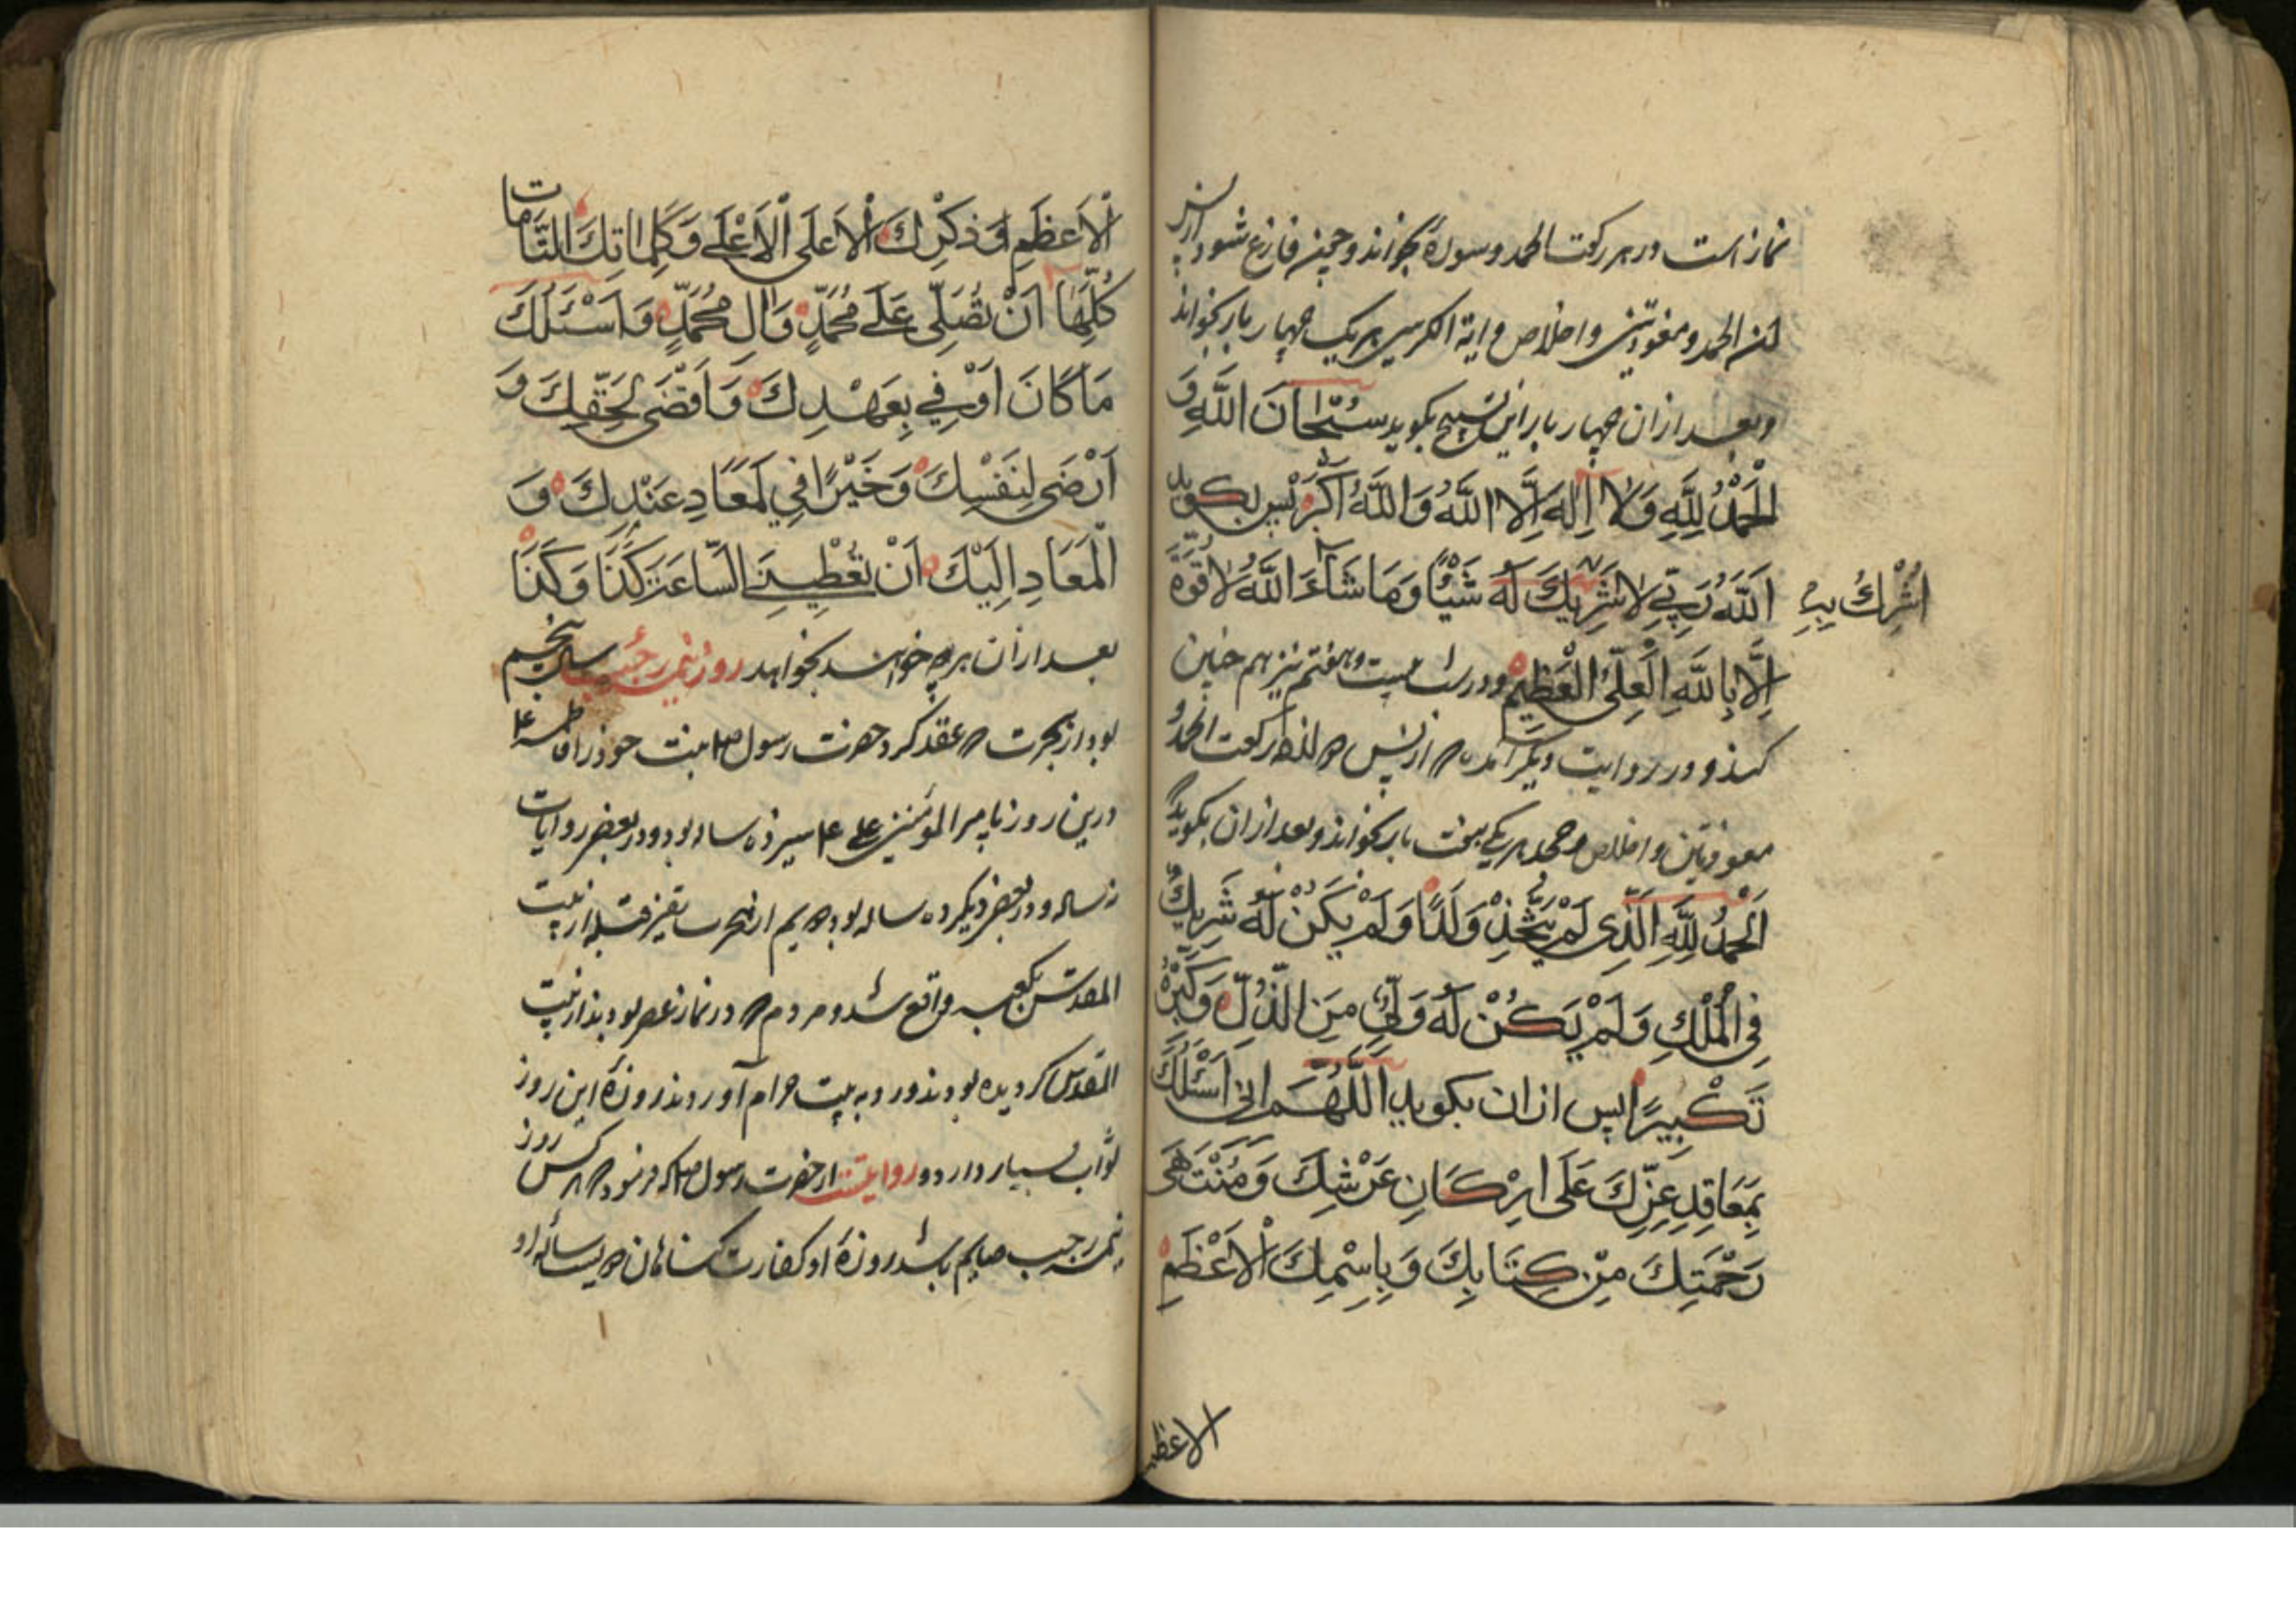 نماز است در هر رکعت الحمد و سورهٔ بخواند و چون فارغ شود ازین
الحمد و معوذتین و اخلاص و ایة الکرسی هر یک چهار بار بخواند
و بعد از ان چهار بار این تسبیح بکوید سُبْحانَ اللَّهِ وَ
الْحَمْدُ لِلَّهِ وَلا اِلهَ اِلَّا اللَّهُ وَاللَّهُ اَكْبَرُ پس بکوید
اَللَّهُ رَبِّي لا شَرِيكَ لَهُ شَيْئًا وَمَا شَاءَ اللَّهُ لا قُوَّةَ
اُشْرِكُ بِهِ
اِلَّا بِاللَّهِ الْعَلِيِّ الْعَظِيمِ و در شب بیست و هفتم نیز هم چنین
کند و در روایت دیکر آمده از پس رکعت الحمد و
معوذتین و اخلاص و جحد هر یکی هفت بار بخواند و بعد از ان بکوید
اَلْحَمْدُ لِلَّهِ الَّذِي لَمْ يَتَّخِذْ وَلَدًا وَلَمْ يَكُنْ لَهُ شَرِيكٌ
فِي الْمُلْكِ وَلَمْ يَكُنْ لَهُ وَلِيٌّ مِنَ الذُّلِّ وَكَبِّرْهُ
تَكْبِيرًا پس از ان بکوید اَللَّهُمَّ اِنِّي اَسْئَلُكَ
بِمَعَاقِدِ عِزِّكَ عَلَى اَرْكَانِ عَرْشِكَ وَمُنْتَهَى
رَحْمَتِكَ مِنْ كِتَابِكَ وَبِاسْمِكَ الْاَعْظَمِ
الاعظم
الْاَعْظَمِ وَذِكْرِكَ الْاَعْلَى الْاَعْلَى وَكَلِمَاتِكَ التَّامَّاتِ
كُلِّهَا اَنْ تُصَلِّيَ عَلَى مُحَمَّدٍ وَالِ مُحَمَّدٍ وَاَسْئَلُكَ
مَا كَانَ اَوْفِي بِعَهْدِكَ وَاَقْضَى لِحَقِّكَ وَ
اَرْضَى لِنَفْسِكَ وَخَيْرًا فِي لَمَعَادِ عِنْدِكَ وَ
الْمَعَادِ اِلَيْكَ اَنْ تُعْطِيَنِي السَّاعَةَ كَذَا وَكَذَا
بعد از ان هر چه خواهد بخواهد روز نیمه رجب سال پنجم
بود از هجرت عقد کرد حضرت رسول بنت خود را فاطمه
درین روز با امیر المؤمنین علی سیزده ساله بود و در بعضی روایات
نه ساله و در بعضی دیکر ده ساله بود از هجرت تغییر قبله از بیت
المقدس بکعبه واقع شد و مردم در نماز عصر بودند از بیت
المقدس کردیده بودند و رو به بیت حرام آوردند روزهٔ این روز
ثواب بسیار دارد و روایتست از حضرت رسول که فرمود هر کس روز
نیمه رجب صایم باشد روزهٔ او کفارت کناهان